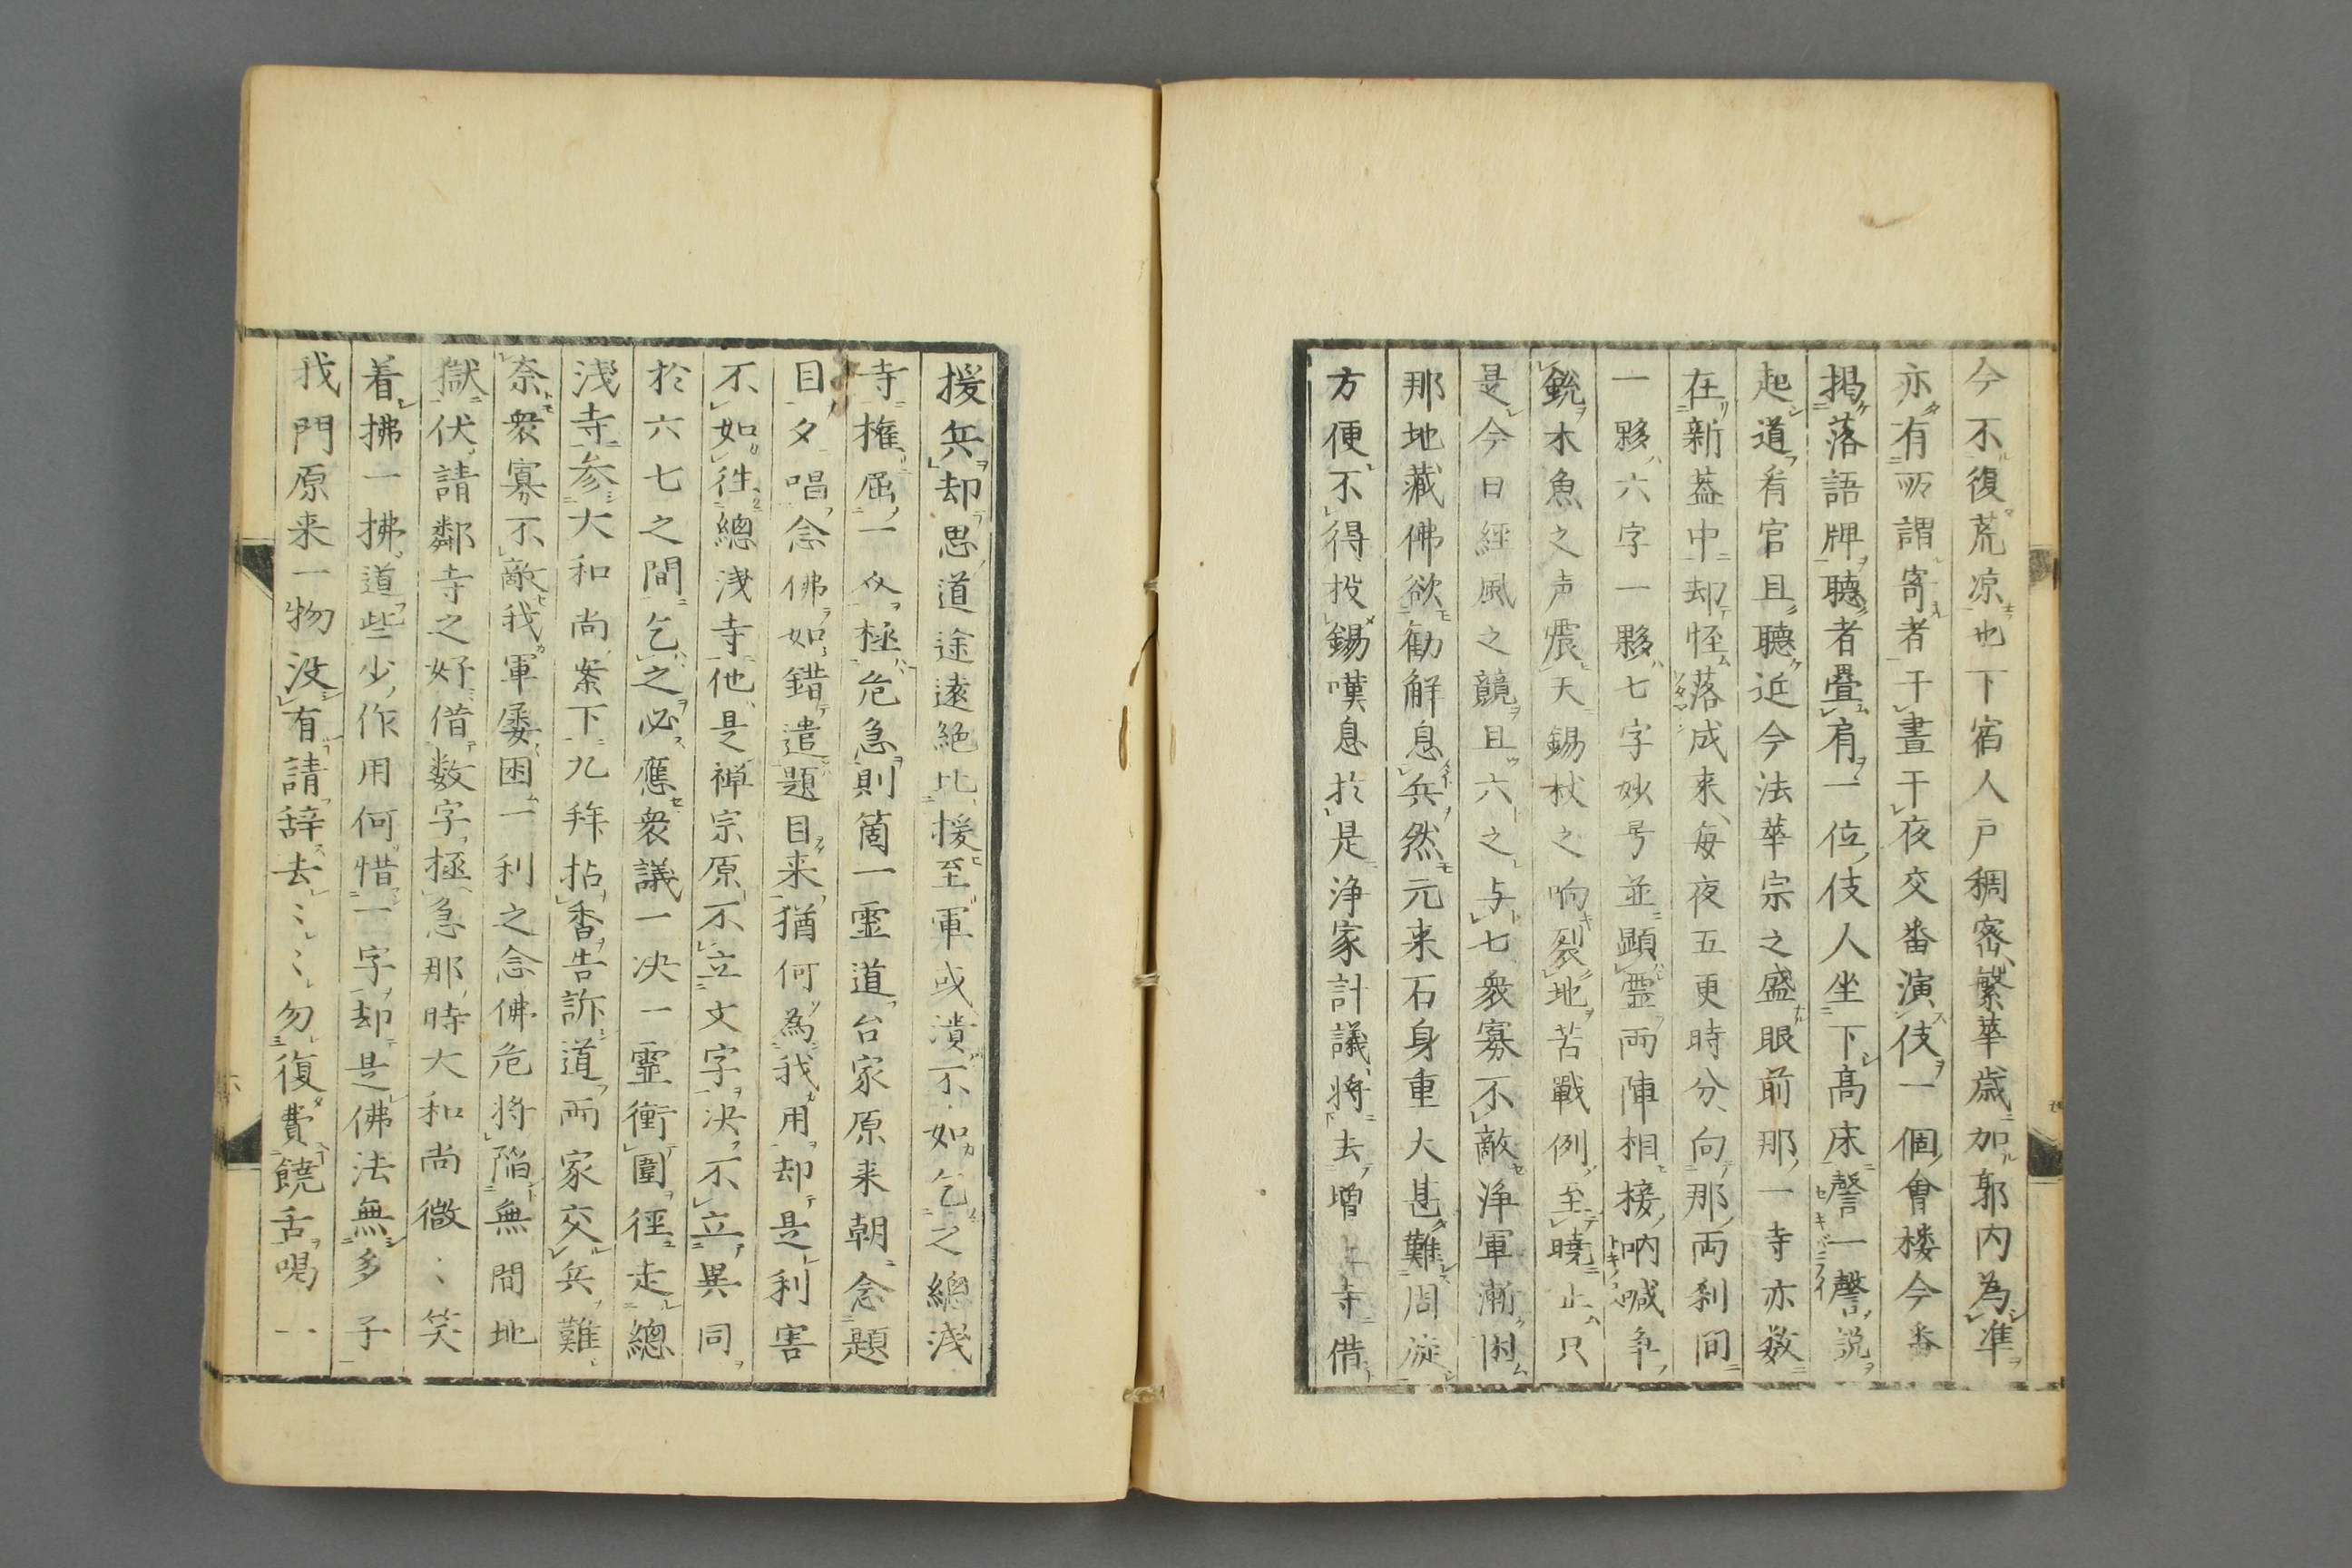 今不復荒凉也下宿人戸稠密繁華歳加郭内為準
亦有所謂寄者于晝于夜交番演伎一個會楼今番
掲落語牌聴者疊肩一位伎人坐下高床謦一謦説
起道看官且聴近今法華宗之盛眼前那一寺亦数
在新葢中却恠落成来毎夜五更時分向那両刹間
一夥六字一夥七字妙号並顕霊両陣相接吶喊争
鋭木魚之声震天錫杖之响裂地苦戰例至曉止只
是今日經風之競且六之与七衆寡不敵浄軍漸困
那地藏佛欲勧解息兵然元来石身重大甚難周旋
方便不得投錫嘆息於是浄家計議将去増上寺借
援兵却思道途遠絶比援至軍或潰不如乞之總浅
寺権屈一籌極危急則箇一霊道台家原来朝念題
目夕唱念佛如錯遣題目来猶何為我用却是利害
不如徃總浅寺他是禅宗原不立文字决不立異同
於六七之間乞之必應衆議一决一霊衝圍徑走總
浅寺参大和尚案下九拜拈香告訴道両家交兵難
奈衆寡不敵我軍屡困一利之念佛危将陥無間地
獄伏請鄰寺之好借数字極急那時大和尚微〻笑
着拂一拂道些少作用何惜一字却是佛法無多子
我門原来一物没有請辞去〻〻勿復費饒舌喝一